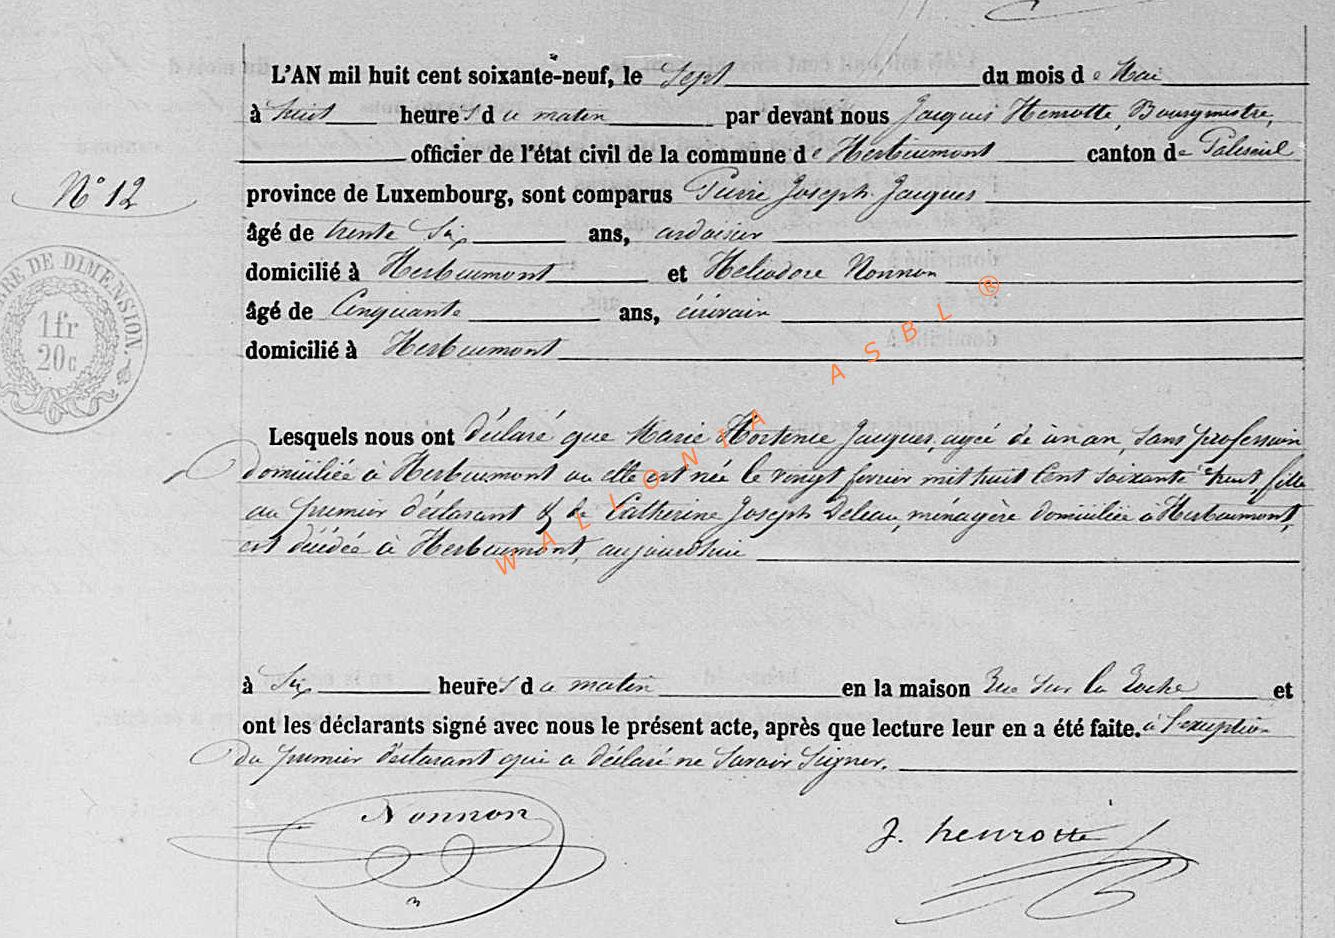 L'AN mil huit cent soixante-neuf, le Sept du mois de Mai
à huit heures du matin par devant nous Jacques Henrotte, Bourgmestre,
officier de l'état civil de la commune de Herbeumont canton de Paliseul
N° 12
province de Luxembourg, sont comparus Pierre Joseph Jacques
âgé de trente Six ans, ardoisier
domicilié à Herbeumont et Héliodore Nonnon
âgé de Cinquante ans, écrivain
domicilié à Herbeumont
RE DE DIMENSION.
1fr
20c
Lesquels nous ont déclaré que Marie Hortence Jacques, agée de un an, Sans profession
domiciliée à Herbeumont ou elle est née le vingt fevrier mil huit Cent soixante huit, fille
du premier déclarant & de Catherine Joseph Deleau, ménagère domiciliée à Herbeumont,
est décédée à Herbeumont, aujourdhui
à Six heures du matin en la maison Rue Sur la Roche et
ont les déclarants signé avec nous le présent acte, après que lecture leur en a été faite. à l'exception
Du premier déclarant qui a déclaré ne Savoir Signer.
Nonnon
J. henrotte
WALLONIA ASBL ®